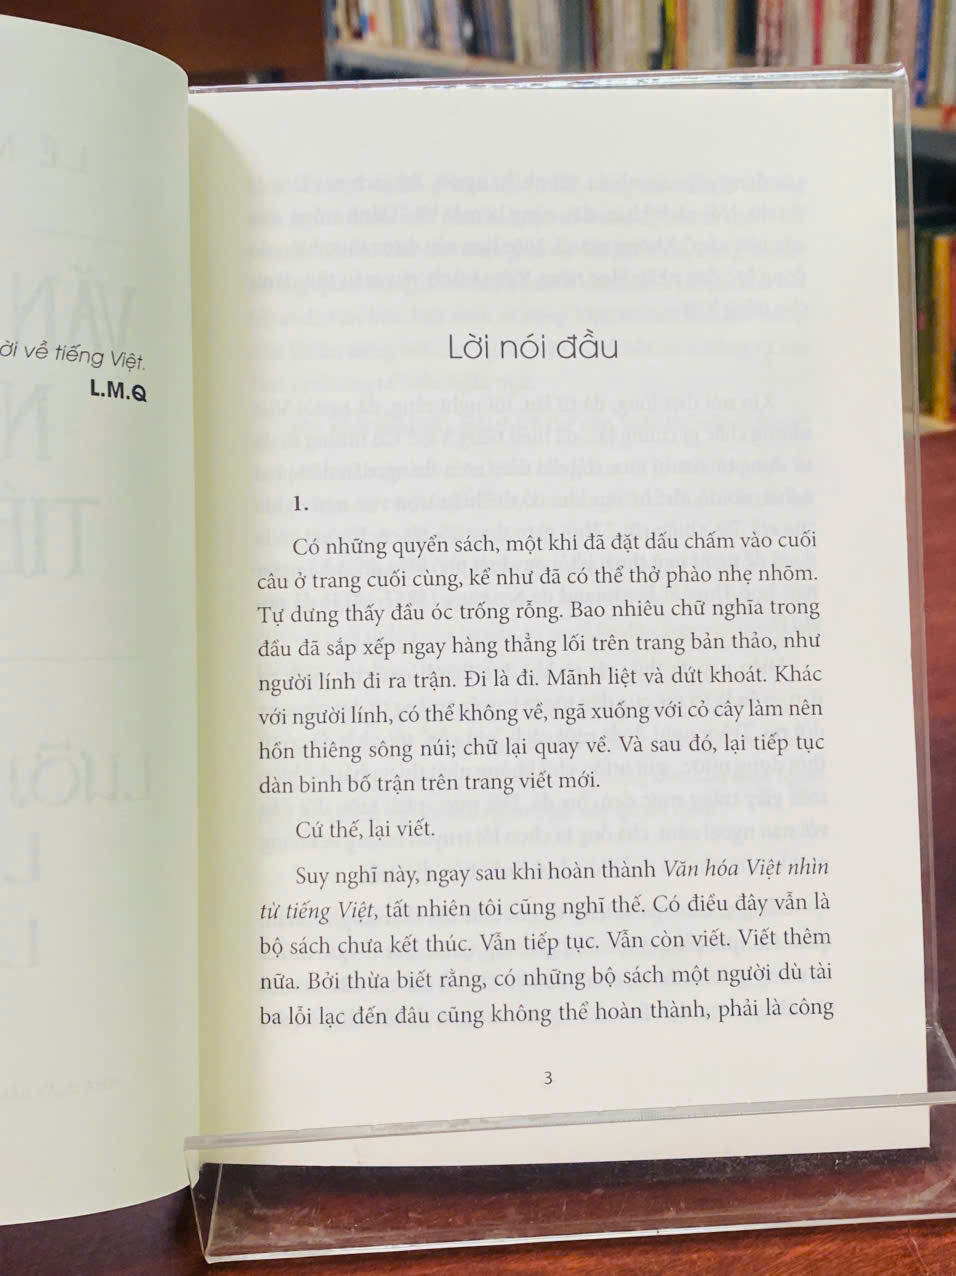 ời về tiếng Việt.
L.M.Q
Lời nói đầu
1.
Có những quyển sách, một khi đã đặt dấu chấm vào cuối
câu ở trang cuối cùng, kể như đã có thể thở phào nhẹ nhõm.
Tự dưng thấy đầu óc trống rỗng. Bao nhiêu chữ nghĩa trong
đầu đã sắp xếp ngay hàng thẳng lối trên trang bản thảo, như
người lính đi ra trận. Đi là đi. Mãnh liệt và dứt khoát. Khác
với người lính, có thể không về, ngã xuống với cỏ cây làm nên
hồn thiêng sông núi; chữ lại quay về. Và sau đó, lại tiếp tục
dàn binh bố trận trên trang viết mới.
Cứ thế, lại viết.
Suy nghĩ này, ngay sau khi hoàn thành Văn hóa Việt nhìn
từ tiếng Việt, tất nhiên tôi cũng nghĩ thế. Có điều đây vẫn là
bộ sách chưa kết thúc. Vẫn tiếp tục. Vẫn còn viết. Viết thêm
nữa. Bởi thừa biết rằng, có những bộ sách một người dù tài
ba lỗi lạc đến đâu cũng không thể hoàn thành, phải là công
3